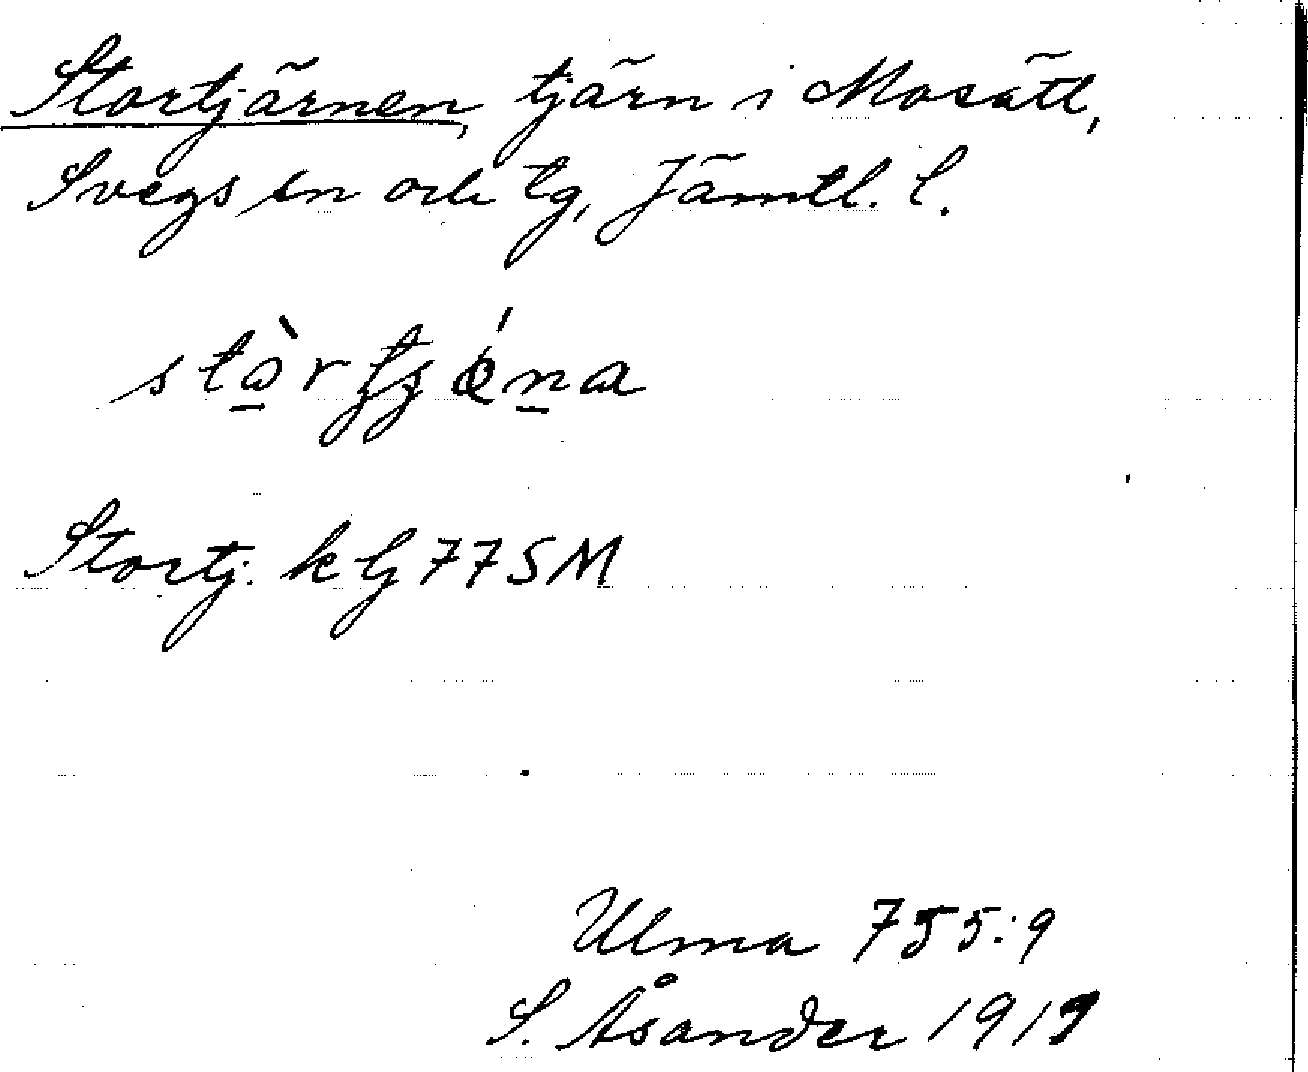 Stortjärnen, tjärn i Mosätt,
Svegs sn och tg, Jämtl. l.
stò̱rtjǿṉa
Stortj. k bj 77SM
Ulma 755:9
S. Åsander 1919